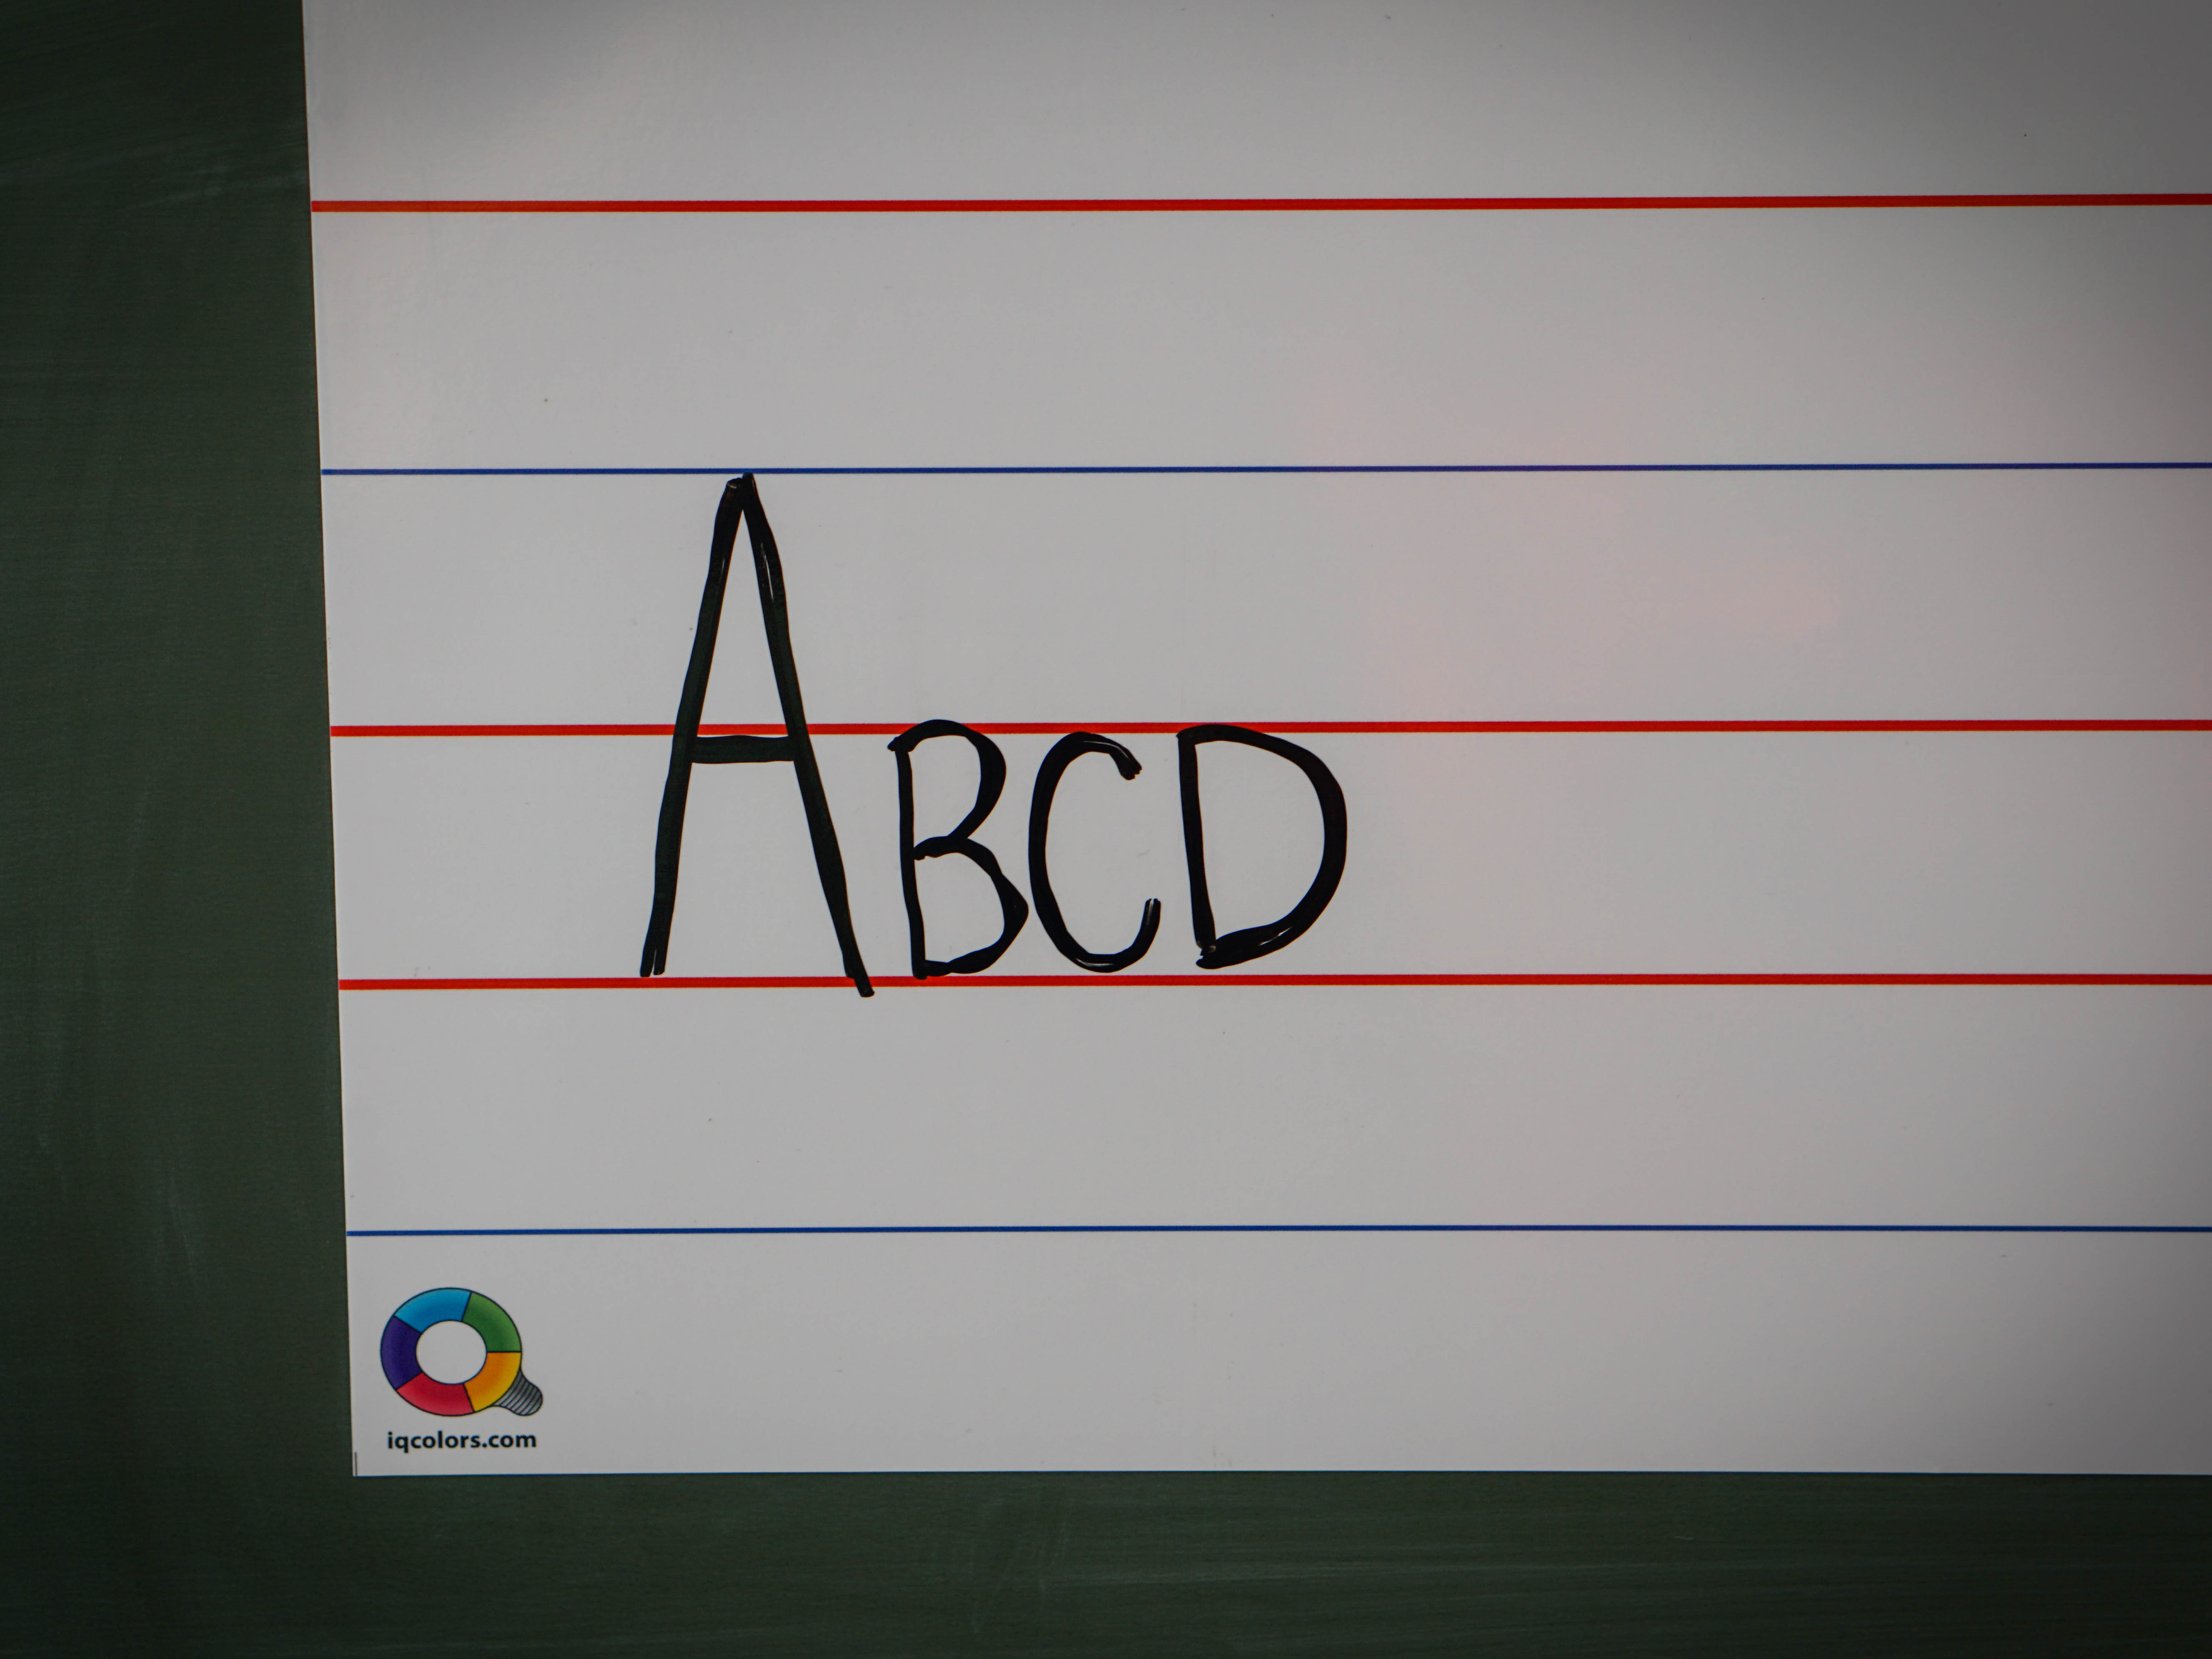 ABCD
iqcolors.com